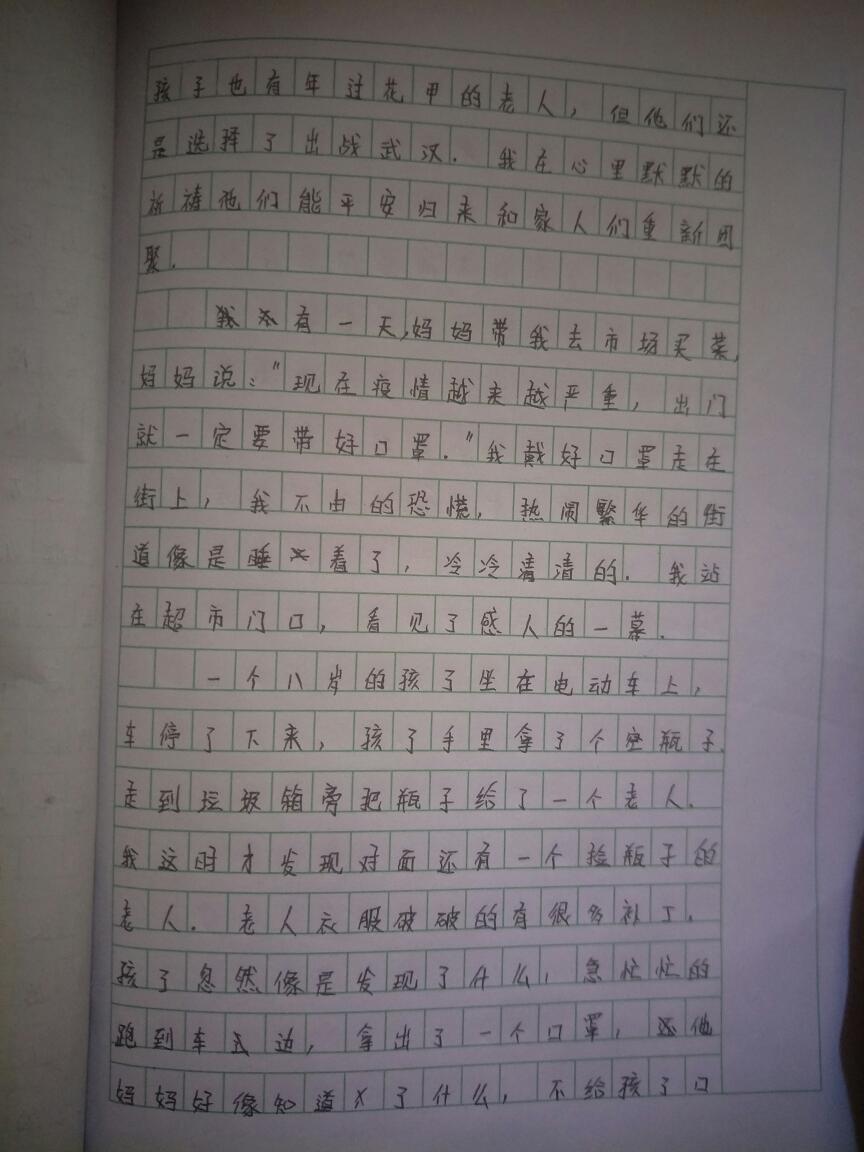 孩子也有年过花甲的老人，但他们还
是选择了出战武汉．我在心里默默的
祈祷他们能平安归来和家人们重新团
聚．
有一天，妈妈带我去市场买菜，
妈妈说："现在疫情越来越严重，出门
就一定要带好口罩．"我戴好口罩走在
街上，我不由的恐慌，热闹繁华的街
道像是睡着了，冷冷清清的．我站
在超市门口，看见了感人的一幕．
一个八岁的孩子坐在电动车上，
车停了下来，孩子手里拿了个空瓶子．
走到垃圾箱旁把瓶子给了一个老人．
我这时才发现对面还有一个捡瓶子的
老人．老人衣服破破的有很多补丁．
孩子忽然像是发现了什么，急忙忙的
跑到车边，拿出了一个口罩，他
妈妈好像知道了什么，不给孩子口